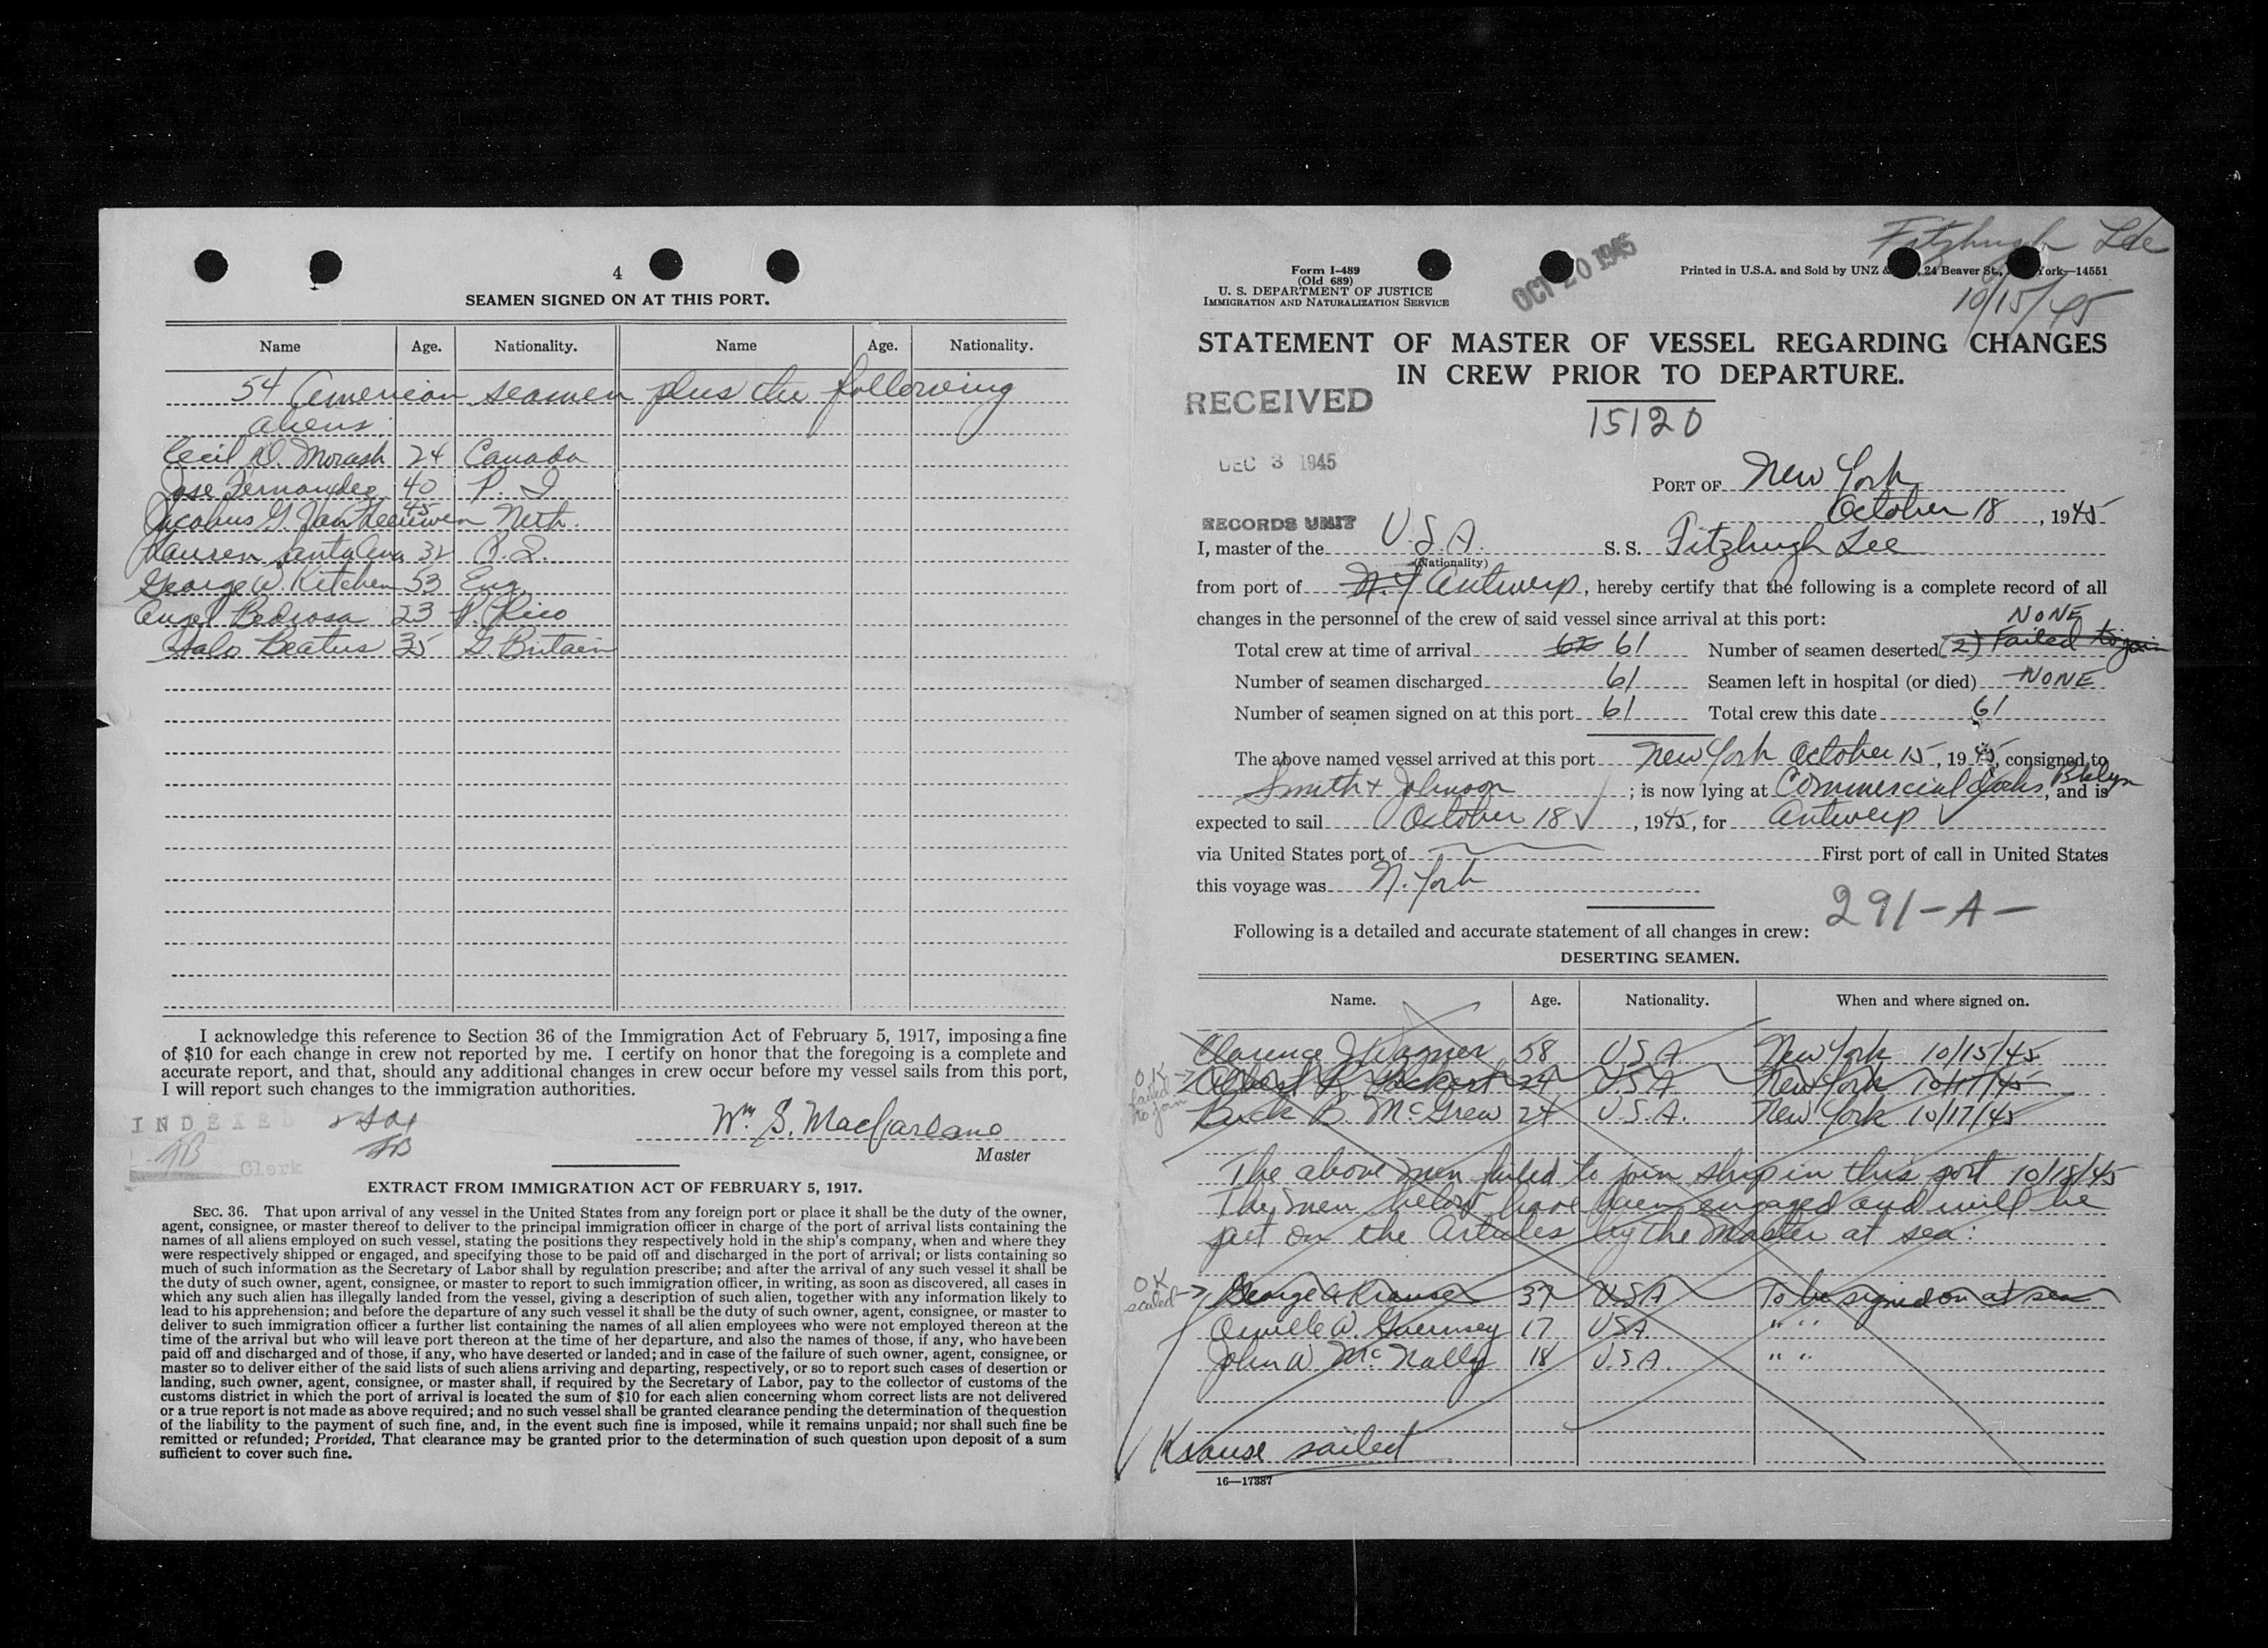 4
SEAMEN SIGNED ON AT THIS PORT.
Name Age. Nationality. Name Age. Nationality.
54 American seamen plus the following
aliens
Cecil D. Morash 24 Canada
Jose Fernandez 40 P. I
Jacobus G. Van Leeuwen 45 Neth.
Santa Ana 32
George W. Kitchen 53 Eng.
Angel Pedrosa 23 P. Rico
Beatus 35 G. Britain
I acknowledge this reference to Section 36 of the Immigration Act of February 5, 1917, imposing a fine
of $10 for each change in crew not reported by me. I certify on honor that the foregoing is a complete and
accurate report, and that, should any additional changes in crew occur before my vessel sails from this port,
I will report such changes to the immigration authorities.
INDEXED
Clerk
Wm. S. MacFarlane
Master
EXTRACT FROM IMMIGRATION ACT OF FEBRUARY 5, 1917.
SEC. 36. That upon arrival of any vessel in the United States from any foreign port or place it shall be the duty of the owner,
agent, consignee, or master thereof to deliver to the principal immigration officer in charge of the port of arrival lists containing the
names of all aliens employed on such vessel, stating the positions they respectively hold in the ship's company, when and where they
were respectively shipped or engaged, and specifying those to be paid off and discharged in the port of arrival; or lists containing so
much of such information as the Secretary of Labor shall by regulation prescribe; and after the arrival of any such vessel it shall be
the duty of such owner, agent, consignee, or master to report to such immigration officer, in writing, as soon as discovered, all cases in
which any such alien has illegally landed from the vessel, giving a description of such alien, together with any information likely to
lead to his apprehension; and before the departure of any such vessel it shall be the duty of such owner, agent, consignee, or master to
deliver to such immigration officer a further list containing the names of all alien employees who were not employed thereon at the
time of the arrival but who will leave port thereon at the time of her departure, and also the names of those, if any, who have been
paid off and discharged and of those, if any, who have deserted or landed; and in case of the failure of such owner, agent, consignee, or
master so to deliver either of the said lists of such aliens arriving and departing, respectively, or so to report such cases of desertion or
landing, such owner, agent, consignee, or master shall, if required by the Secretary of Labor, pay to the collector of customs of the
customs district in which the port of arrival is located the sum of $10 for each alien concerning whom correct lists are not delivered
or a true report is not made as above required; and no such vessel shall be granted clearance pending the determination of the question
of the liability to the payment of such fine, and, in the event such fine is imposed, while it remains unpaid; nor shall such fine be
remitted or refunded; Provided, That clearance may be granted prior to the determination of such question upon deposit of a sum
sufficient to cover such fine.
Fitzhugh Lee
10/15/45
Form I-489
(Old 689)
U. S. DEPARTMENT OF JUSTICE
IMMIGRATION AND NATURALIZATION SERVICE
OCT 20 1945
Printed in U.S.A. and Sold by UNZ &, 24 Beaver St., York—14551
STATEMENT OF MASTER OF VESSEL REGARDING CHANGES
IN CREW PRIOR TO DEPARTURE.
RECEIVED
15120
DEC 3 1945
PORT OF New York
RECORDS UNIT
October 18, 1945
I, master of the U.S.A. S. S. Fitzhugh Lee
(Nationality)
from port of N.Y Antwerp, hereby certify that the following is a complete record of all
changes in the personnel of the crew of said vessel since arrival at this port:
NONE
Total crew at time of arrival 61 Number of seamen deserted (2) Failed to join
Number of seamen discharged 61 Seamen left in hospital (or died) NONE
Number of seamen signed on at this port 61 Total crew this date 61
The above named vessel arrived at this port New York October 15, 1945, consigned to
Smith & Johnson; is now lying at Commercial docks, Bklyn and is
expected to sail October 18, 1945, for Antwerp
via United States port of First port of call in United States
this voyage was N. York
291-A-
Following is a detailed and accurate statement of all changes in crew:
DESERTING SEAMEN.
Name. Age. Nationality. When and where signed on.
Clarence J Wagner 58 USA New York 10/15/45
OK failed to join
Albert P. 24 USA New York 10/17/45
Buck B. McGrew 24 U.S.A. New York 10/17/45
The above men failed to join ship in this port 10/18/45
The men below have been engaged and will be
put on the Articles by the Master at sea:
OK sailed
George A Krause 37 USA To be signed on at sea
Orville W. Guernsey 17 USA " "
John W McNally 18 U.S.A. " "
Krause sailed
16—17387